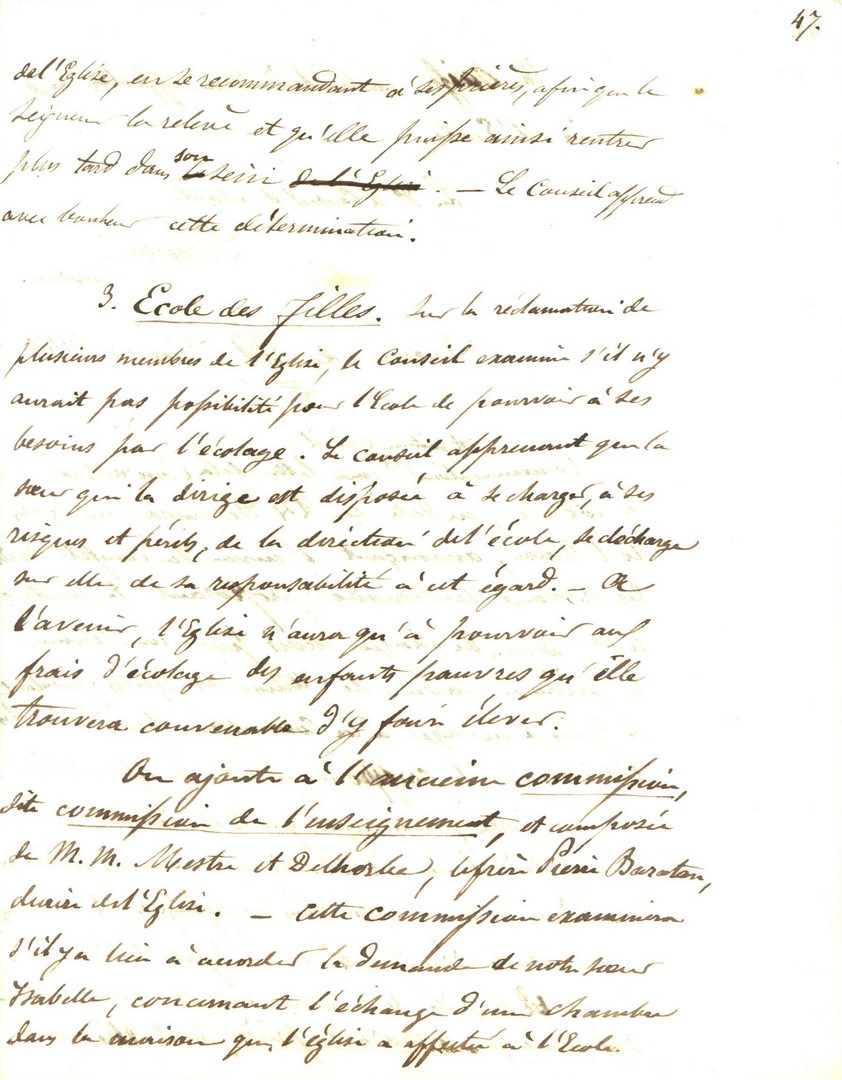 47.
de l'Eglise, en se recommandant à ses prières, afin que le
Seigneur la relève et qu'elle puisse ainsi rentrer
plus tard dans son le sein de l'Eglise. — Le Conseil apprend
avec bonheur cette détermination.
3. Ecole des filles. Sur la réclamation de
plusieurs membres de l'Eglise, le Conseil examine s'il n'y
aurait pas possibilité pour l'Ecole de pourvoir à ses
besoins par l'écolage. Le conseil apprenant que la
sœur qui la dirige est disposée à se charger, à ses
risques et périls, de la direction de l'école, se décharge
sur elle de sa responsabilité à cet égard. — A
l'avenir, l'Eglise n'aura qu'à pourvoir aux
frais d'écolage des enfants pauvres qu'elle
trouvera convenable d'y faire élever.
On ajoute à l'ancienne commission,
dite commission de l'enseignement, et composée
de M.M. Mestre et Delhorbe, le frère Pierre Baratau,
diacre de l'Eglise. — Cette commission examinera
s'il y a lieu à accorder la demande de notre sœur
Isabelle, concernant l'échange d'une chambre
dans la maison que l'église a affectée à l'Ecole.